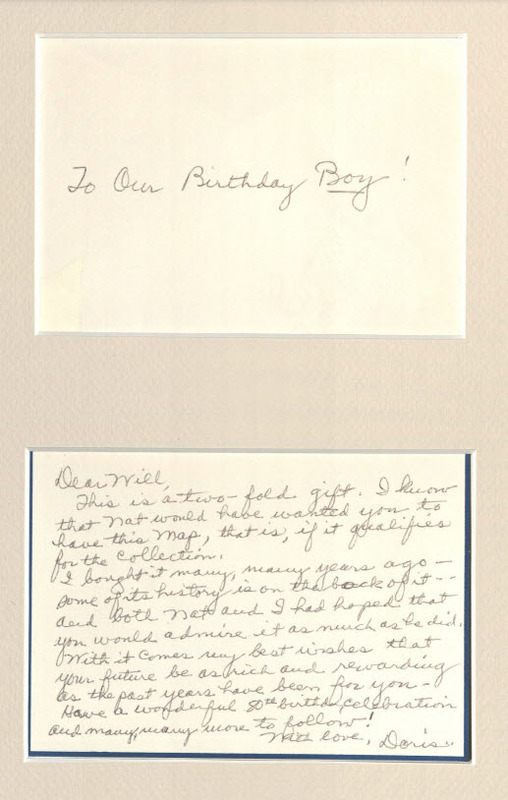 To Our Birthday Boy!
Dear Will,
This is a two-fold gift. I know
that Nat would have wanted you to
have this map, that is, if it qualifies
for the collection.
I bought it many, many years ago —
some of its history is on the back of it --
and both Nat and I had hoped that
you would admire it as much as he did.
With it comes my best wishes that
your future be as rich and rewarding
as the past years have been for you —
Have a wonderful 80th birthday celebration
and many, many more to follow!
With love, Doris